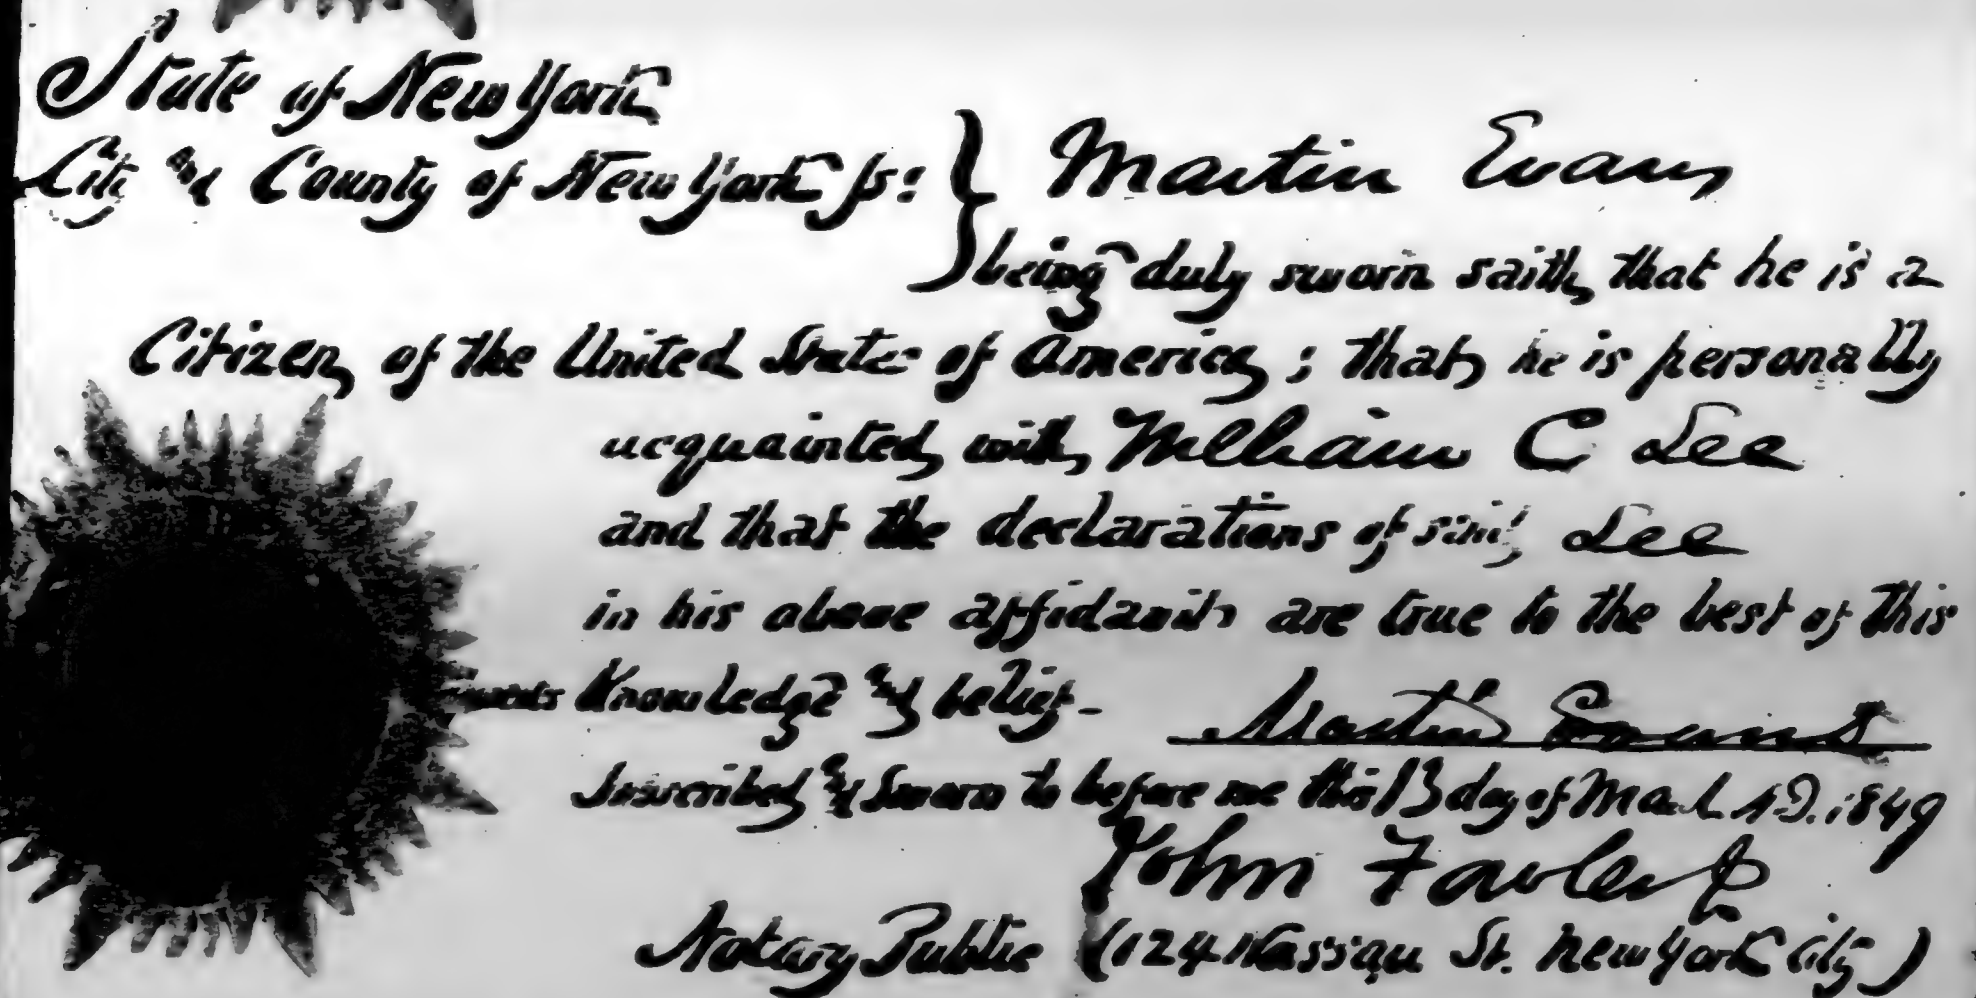 State of New York
City and County of New York ss: } Martin Evans
being duly sworn saith, that he is a
Citizen of the United States of America; that he is personally
acquainted with William C Lee
and that the declarations of said Lee
in his above affidavit are true to the best of this
knowledge and belief -
Martin Evans
Subscribed and Sworn to before me this 13 day of March A.D. 1849
John Fowler Jr
Notary Public (124 Nassau St. New York City)